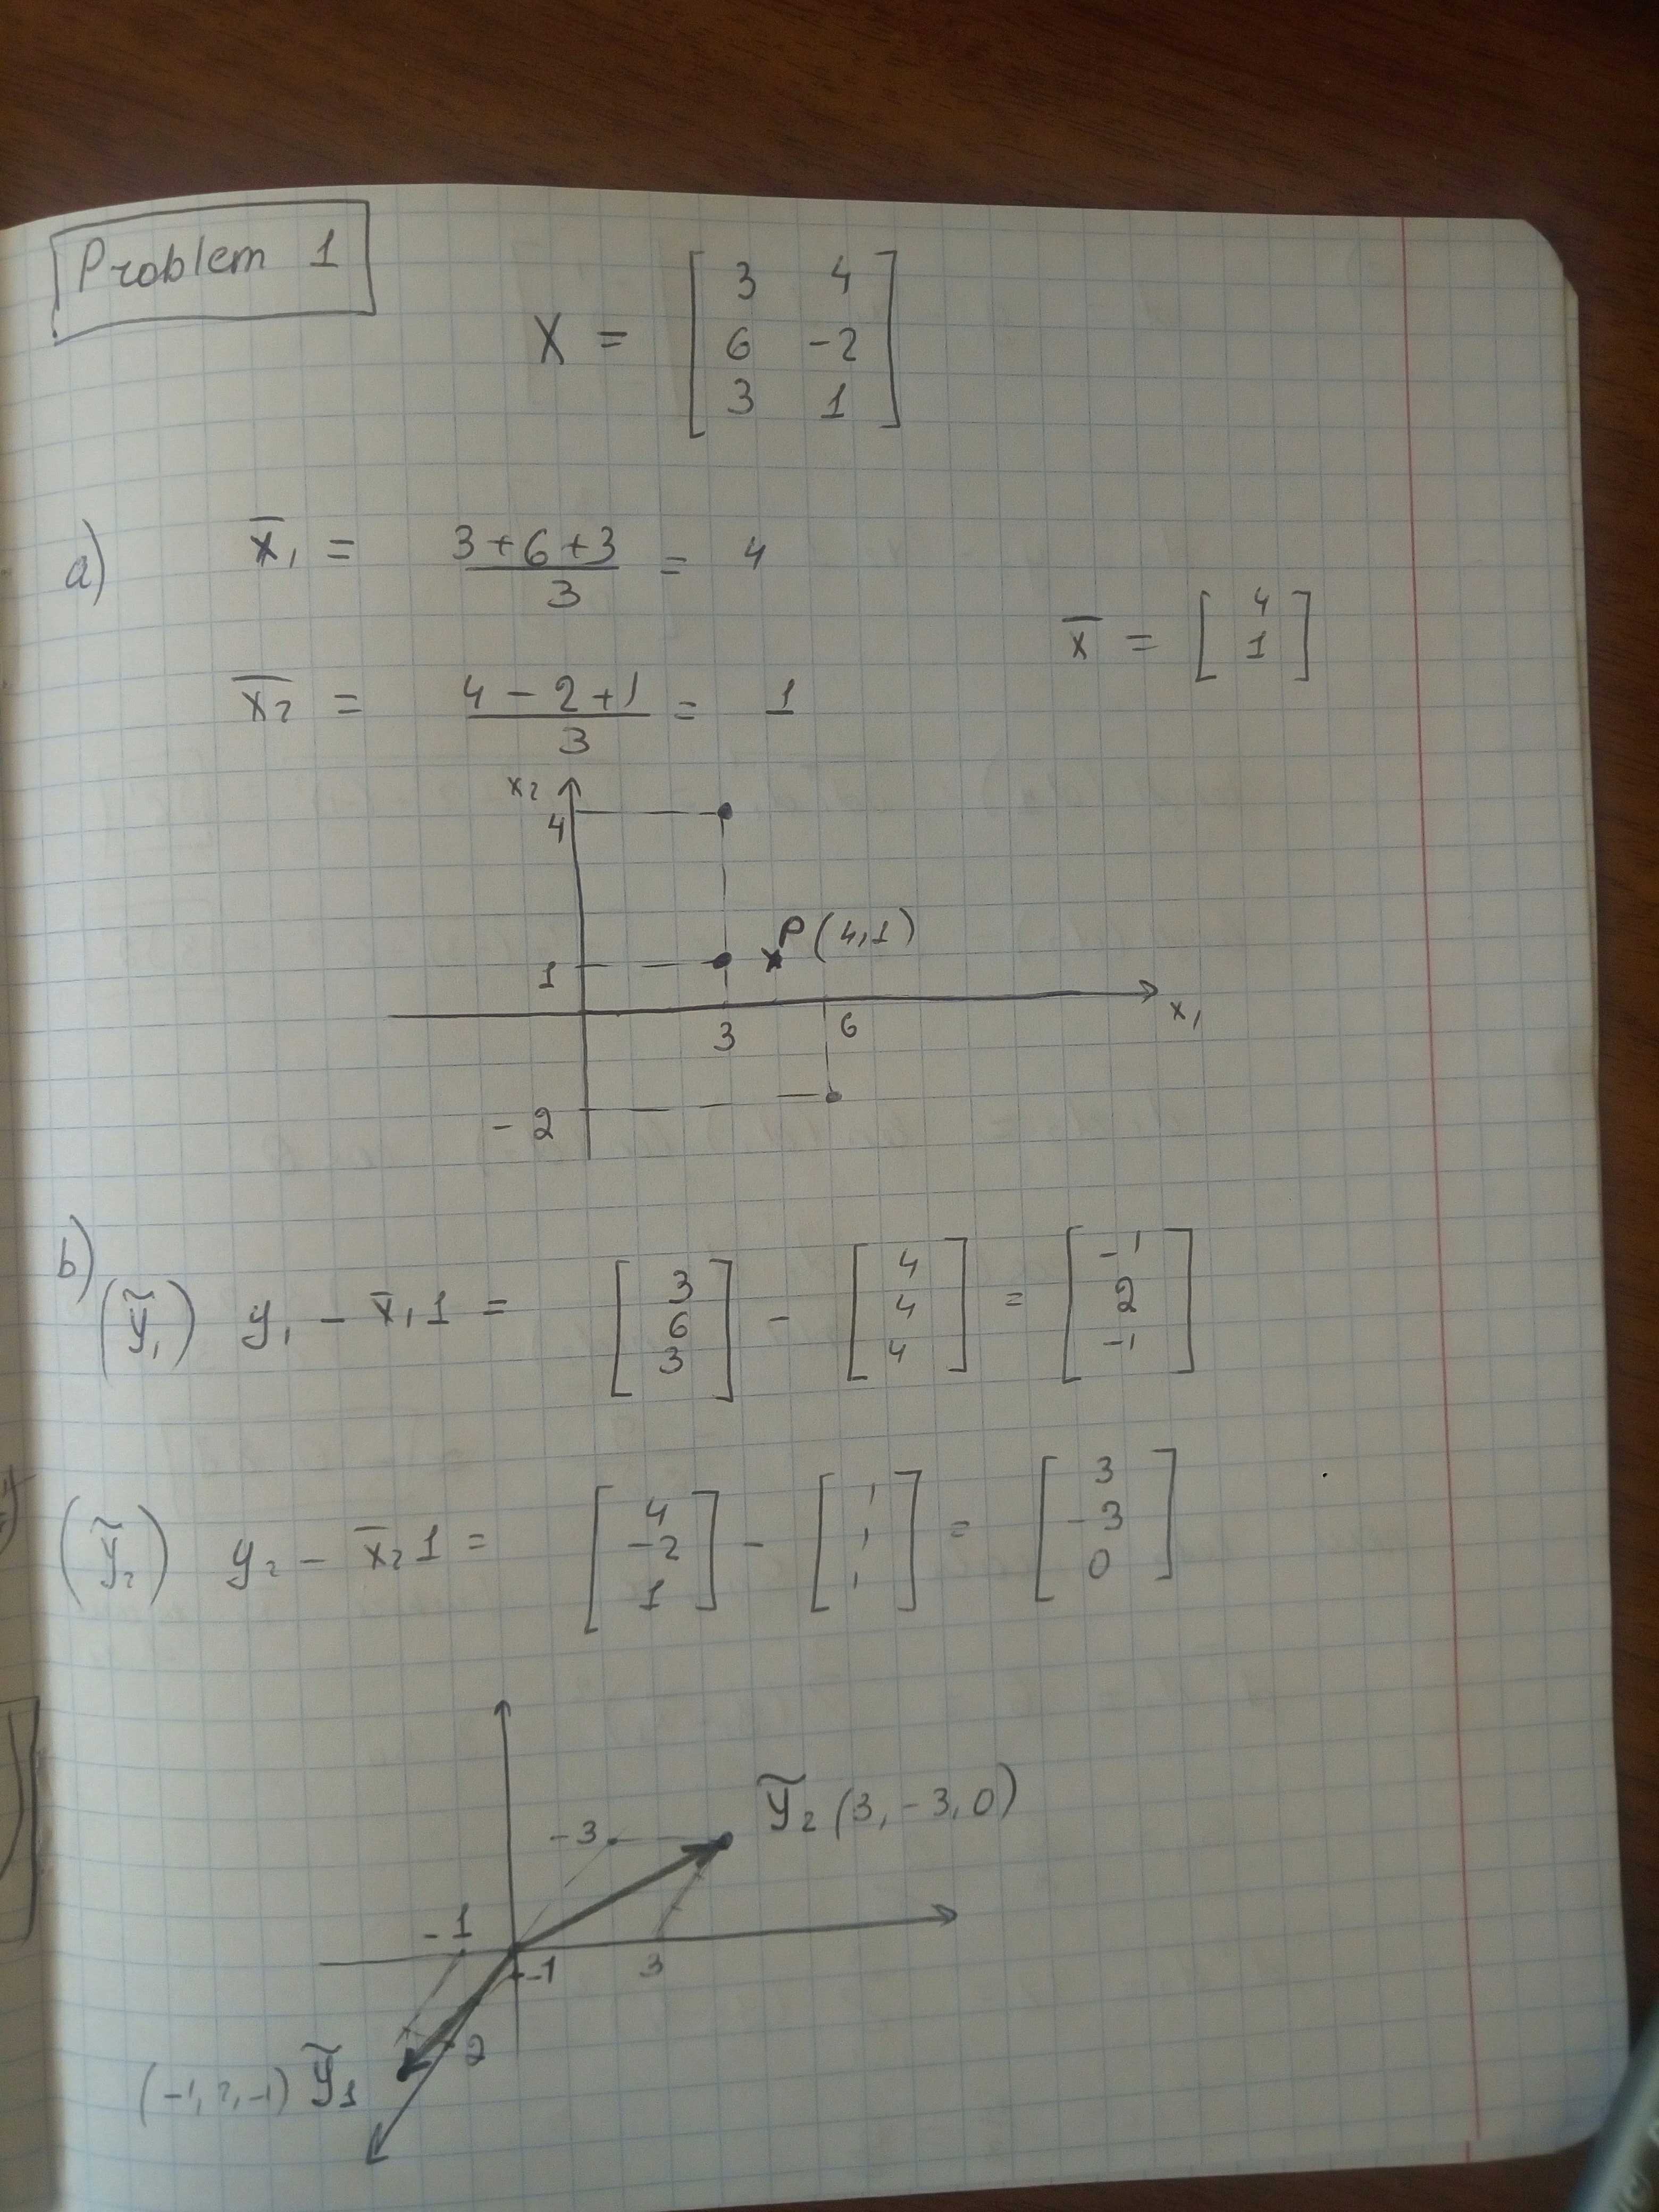 Problem 1
X = [ 3 4
6 -2
3 1 ]
a) x̄₁ = (3+6+3)/3 = 4
x̄ = [ 4
1 ]
x̄₂ = (4-2+1)/3 = 1
x₂
4
P (4,1)
1
3 6 x₁
-2
b)
(ỹ₁) y₁ - x̄₁1 = [ 3 6 3 ] - [ 4 4 4 ] = [ -1 2 -1 ]
(ỹ₂) y₂ - x̄₂1 = [ 4 -2 1 ] - [ 1 1 1 ] = [ 3 -3 0 ]
ỹ₂ (3, -3, 0)
-3
-1
-1 3
2
(-1, 2, -1) ỹ₁